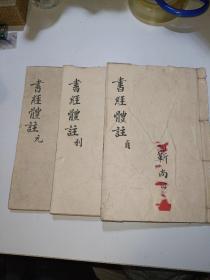 書經體註貞
靳尚
書經體註利
書經體註元